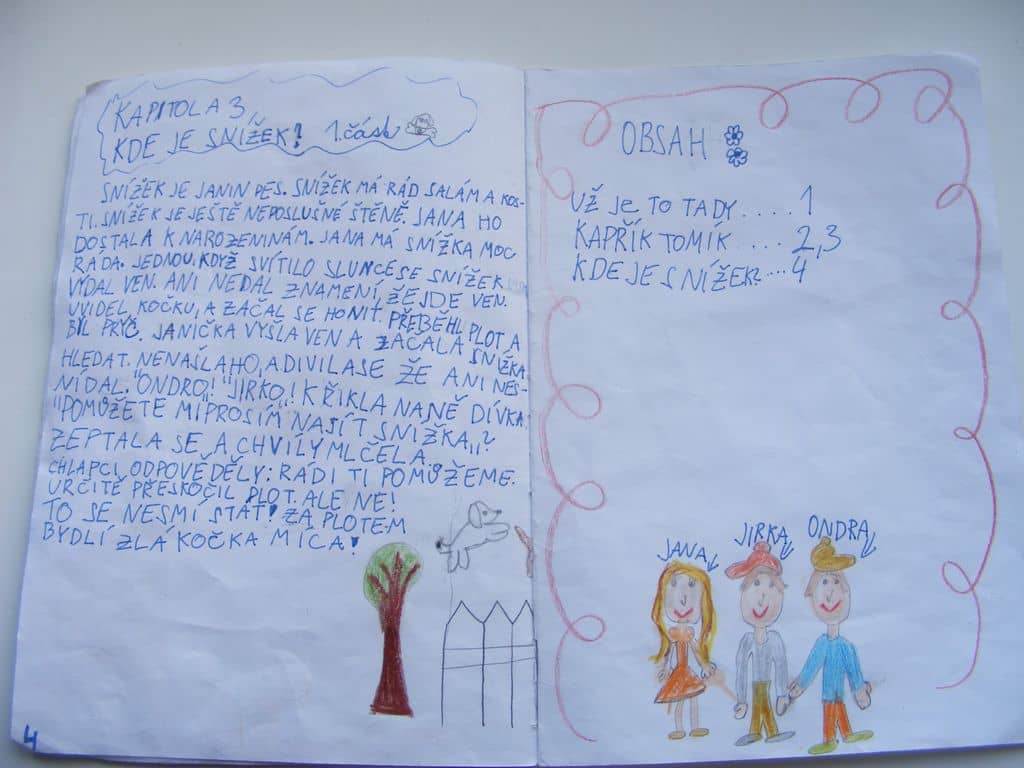 KAPITOLA 3
KDE JE SNÍŽEK? 1.část
SNÍŽEK JE JANIN PES. SNÍŽEK MÁ RÁD SALÁM A KOS-
TI. SNÍŽEK JE JEŠTĚ NEPOSLUŠNÉ ŠTĚNĚ. JANA HO
DOSTALA K NAROZENINÁM. JANA MÁ SNÍŽKA MOC
RÁDA. JEDNOU, KDYŽ SVÍTILO SLUNCE SE SNÍŽEK
VYDAL VEN. ANI NEDAL ZNAMENÍ, ŽE JDE VEN.
UVIDEL KOČKU, A ZAČAL SE HONIT. PŘEBĚHL PLOT A
BYL PRYČ. JANIČKA VYŠLA VEN A ZAČALA SNÍŽKA
HLEDAT. NENAŠLA HO, A DIVILA SE ŽE ANI NES-
NÍDAL. "ONDRO!" "JIRKO,! KŘIKLA NA NĚ DÍVKA.
"POMŮŽETE MI PROSÍM NAJÍT SNÍŽKA,"?
ZEPTALA SE A CHVÍLY MLČELA.
CHLAPCI ODPOVĚDĚLY: RÁDI TI POMŮŽEME.
URČITĚ PŘESKOČIL PLOT. ALE NE!
TO SE NESMÍ STÁT! ZA PLOTEM
BYDLÍ ZLÁ KOČKA MICA!
4
OBSAH
UŽ JE TO TADY .... 1
KAPŘÍK TOMÍK .... 2,3
KDE JE SNÍŽEK? ... 4
JANA
JIRKA
ONDRA